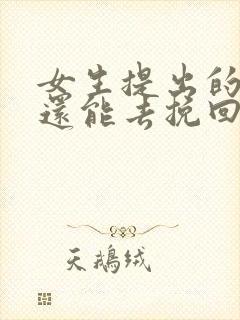 女生提出的
還能去挽回
天鵝绒